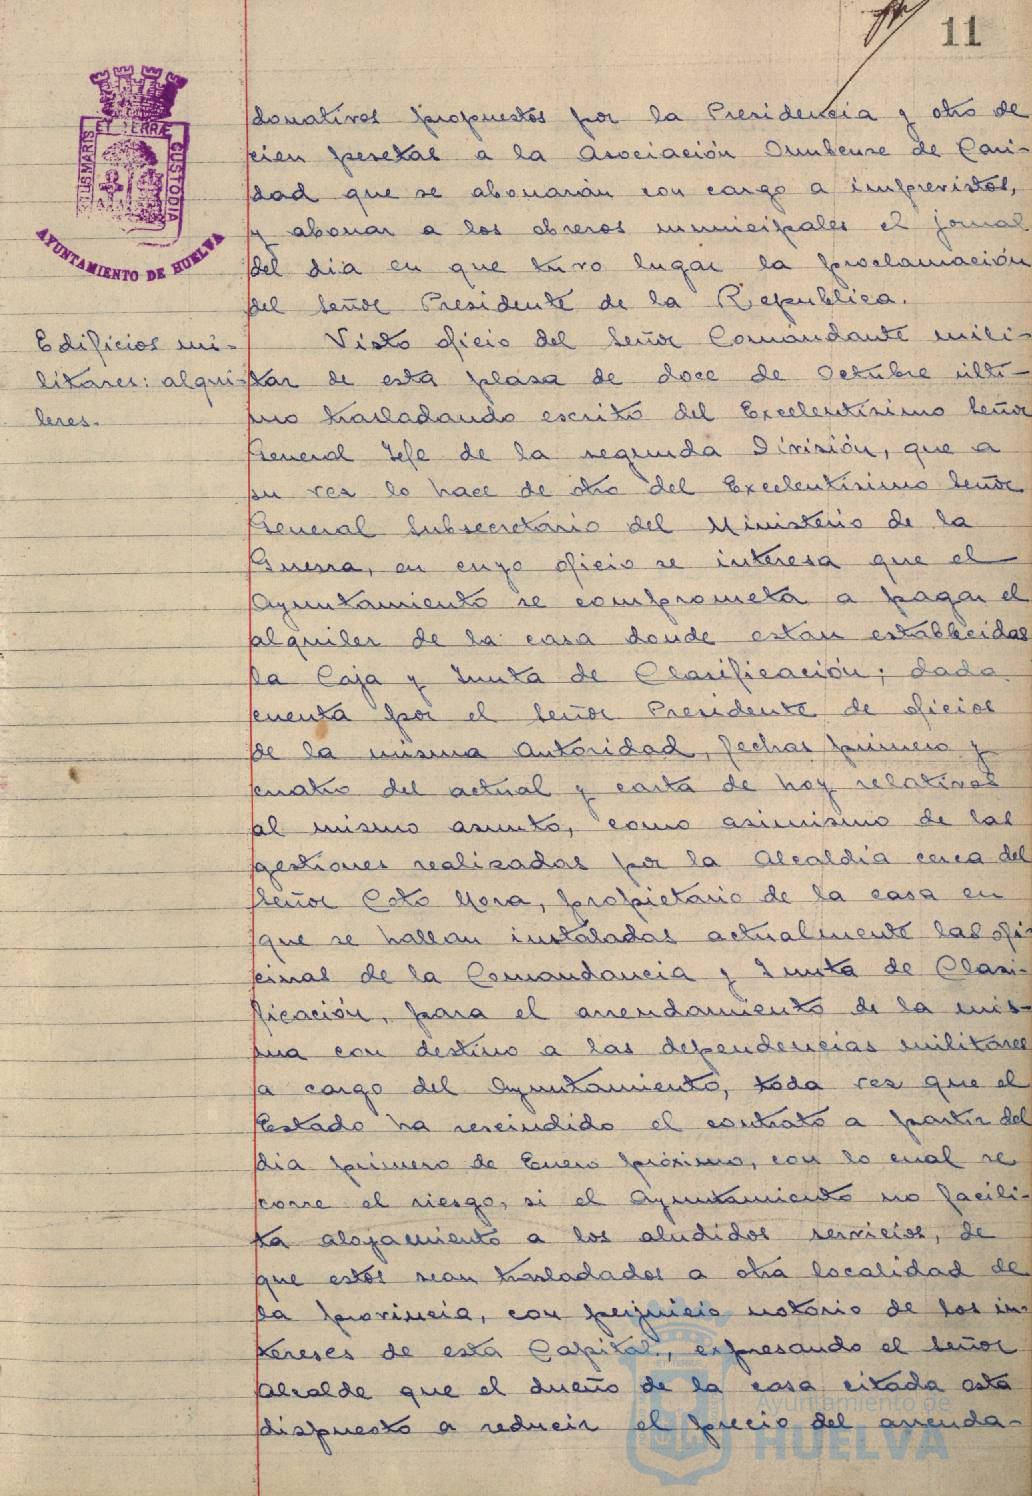 11
PORTUS MARIS ET TERRÆ CUSTODIA
AYUNTAMIENTO DE HUELVA
donativos propuestos por la Presidencia y otro de
cien pesetas a la Asociación Onubense de Cari-
dad que se abonarán con cargo a imprevistos,
y abonar a los obreros municipales el jornal
del dia en que tuvo lugar la proclamación
del Señor Presidente de la República.
Edificios mi-
litares: alqui-
leres.
Visto oficio del Señor Comandante mili-
tar de esta plaza de doce de Octubre ulti-
mo trasladando escrito del Excelentísimo Señor
General Jefe de la segunda División, que a
su vez lo hace de otro del Excelentísimo Señor
General Subsecretario del Ministerio de la
Guerra, en cuyo oficio se interesa que el
Ayuntamiento se comprometa a pagar el
alquiler de la casa donde estan establecidas
la Caja y Junta de Clasificación; dada
cuenta por el Señor Presidente de oficios
de la misma Autoridad, fechas primero y
cuatro del actual y carta de hoy relativos
al mismo asunto, como asimismo de las
gestiones realizadas por la Alcaldía cerca del
Señor Coto Mora, propietario de la casa en
que se hallan instaladas actualmente las ofi-
cinas de la Comandancia y Junta de Clasi-
ficación, para el arrendamiento de la mis-
ma con destino a las dependencias militares
a cargo del Ayuntamiento, toda vez que el
Estado ha rescindido el contrato a partir del
dia primero de Enero próximo, con lo cual se
corre el riesgo, si el Ayuntamiento no facili-
ta alojamiento a los aludidos servicios, de
que estos sean trasladados a otra localidad de
la provincia, con perjuicio notorio de los in-
tereses de esta Capital, expresando el Señor
Alcalde que el dueño de la casa citada está
dispuesto a reducir el precio del arrenda-
Ayuntamiento de
HUELVA